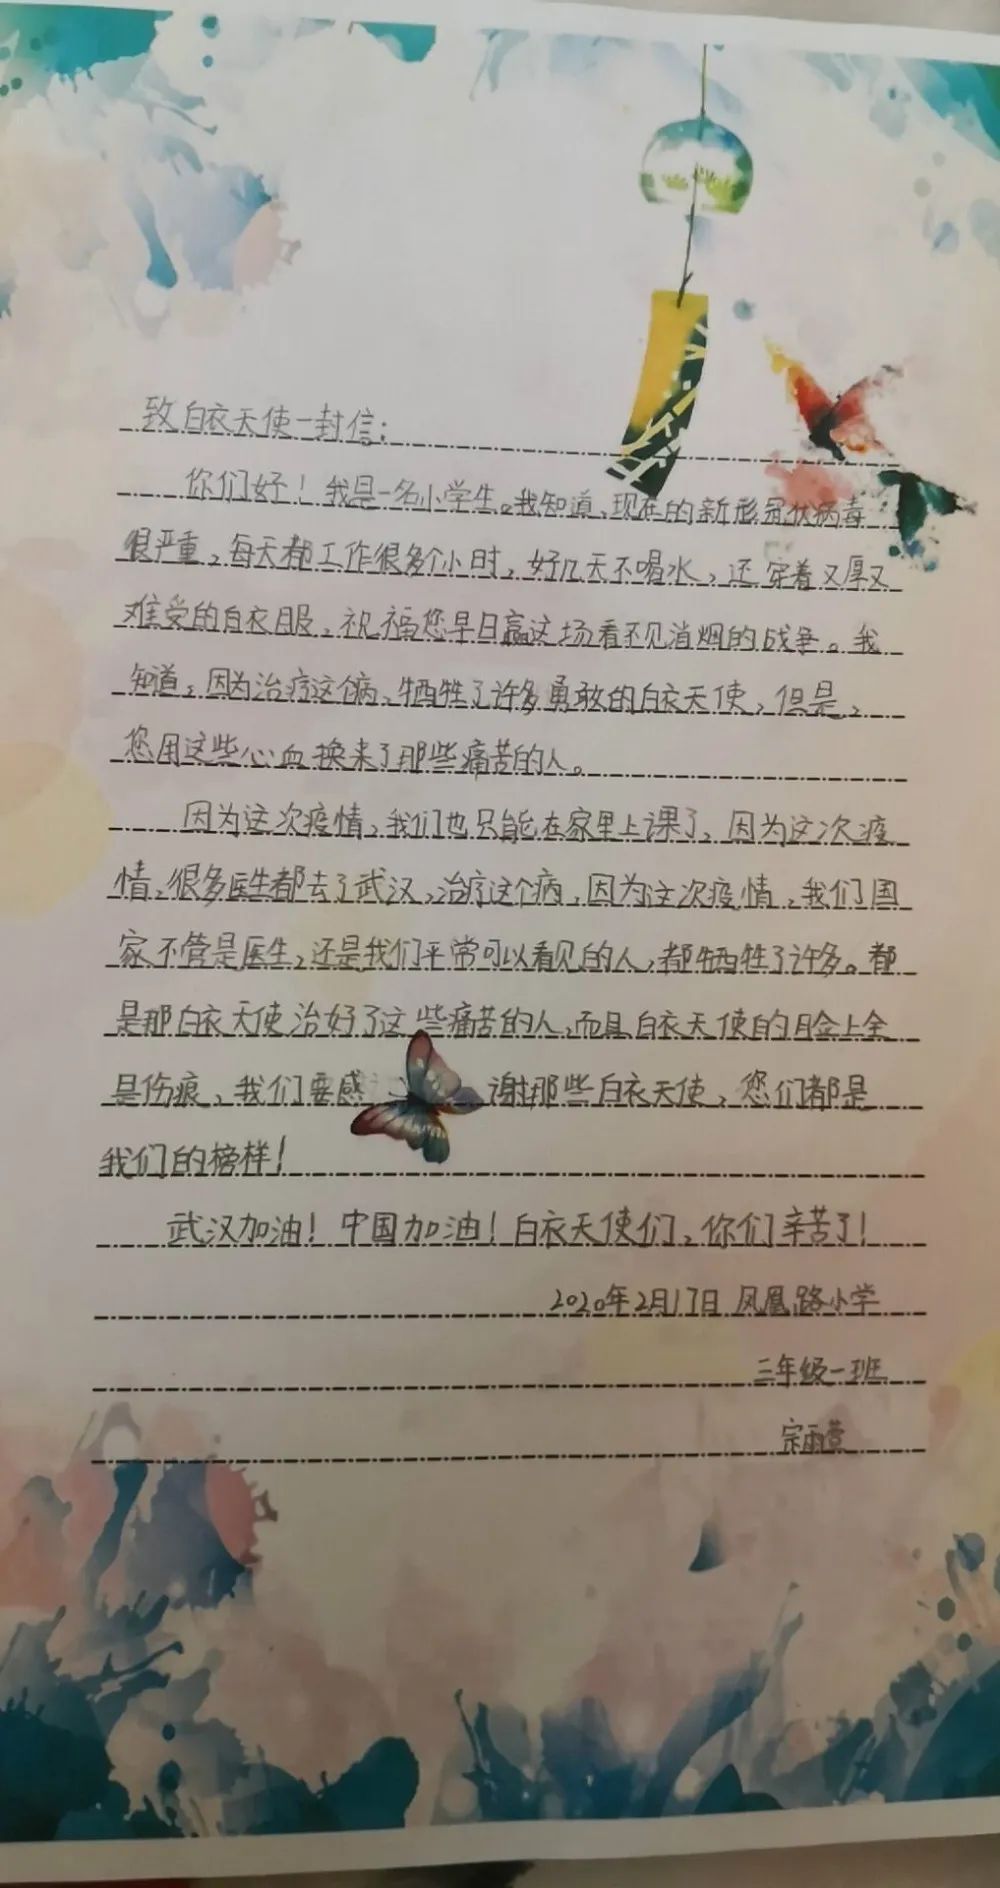 致白衣天使一封信：
你们好！我是一名小学生。我知道，现在的新形冠状病毒
很严重，每天都工作很多个小时，好几天不喝水，还穿着又厚又
难受的白衣服，祝福您早日赢这场看不见消烟的战争。我
知道，因为治疗这个病，牺牲了许多勇敢的白衣天使，但是，
您用这些心血换来了那些痛苦的人。
因为这次疫情，我们也只能在家里上课了，因为这次疫
情，很多医生都去了武汉，治疗这个病，因为这次疫情，我们国
家不管是医生，还是我们平常可以看见的人，都牺牲了许多。都
是那白衣天使治好了这些痛苦的人，而且白衣天使的脸上全
是伤痕，我们要感谢那些白衣天使，您们都是
我们的榜样！
武汉加油！中国加油！白衣天使们，你们辛苦了！
2020年2月17日 凤凰路小学
三年级一班
宗雨萱